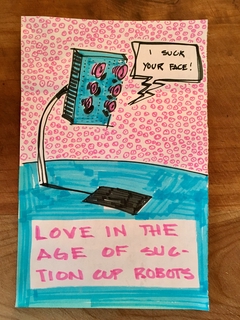 I SUCK
YOUR FACE!
LOVE IN THE
AGE OF SUC-
TION CUP ROBOTS